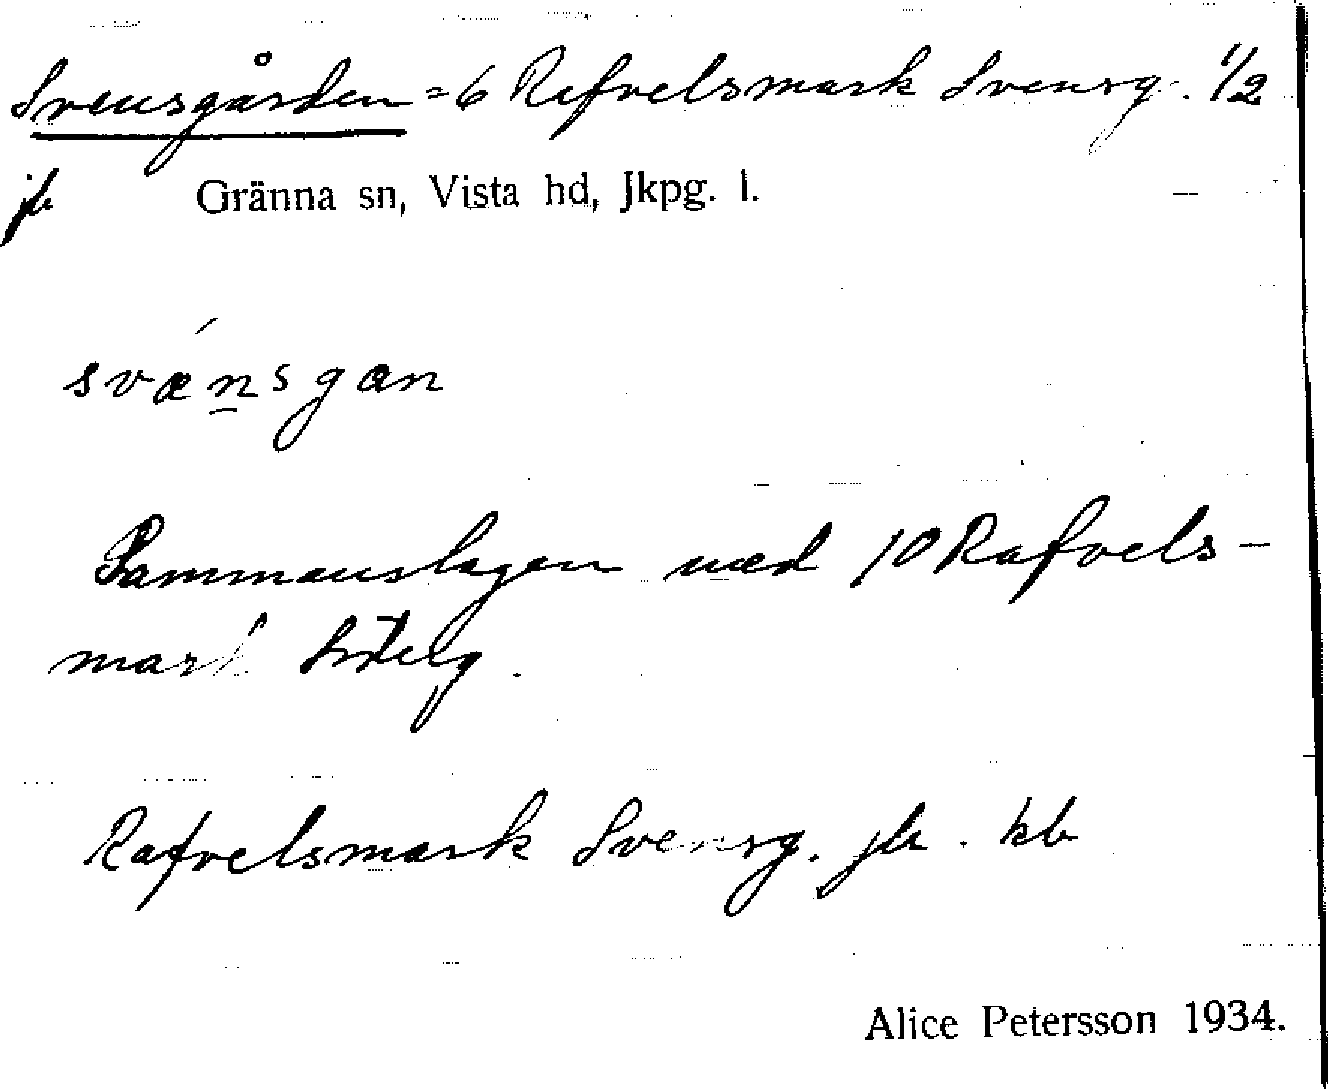 Svensgården = 6 Rafvelsmark Svensg. 1/2
jb Gränna sn, Vista hd, Jkpg. l.
svǽn̲sgan
Sammanslagen med 10 Rafvels-
mark
Rafvelsmark Svensg. jb. kb
Alice Petersson 1934.